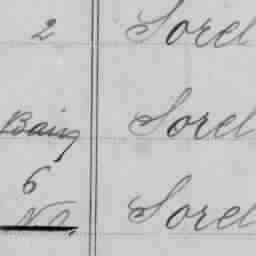 2 Sorel
Bain Sorel
6
No. Sorel